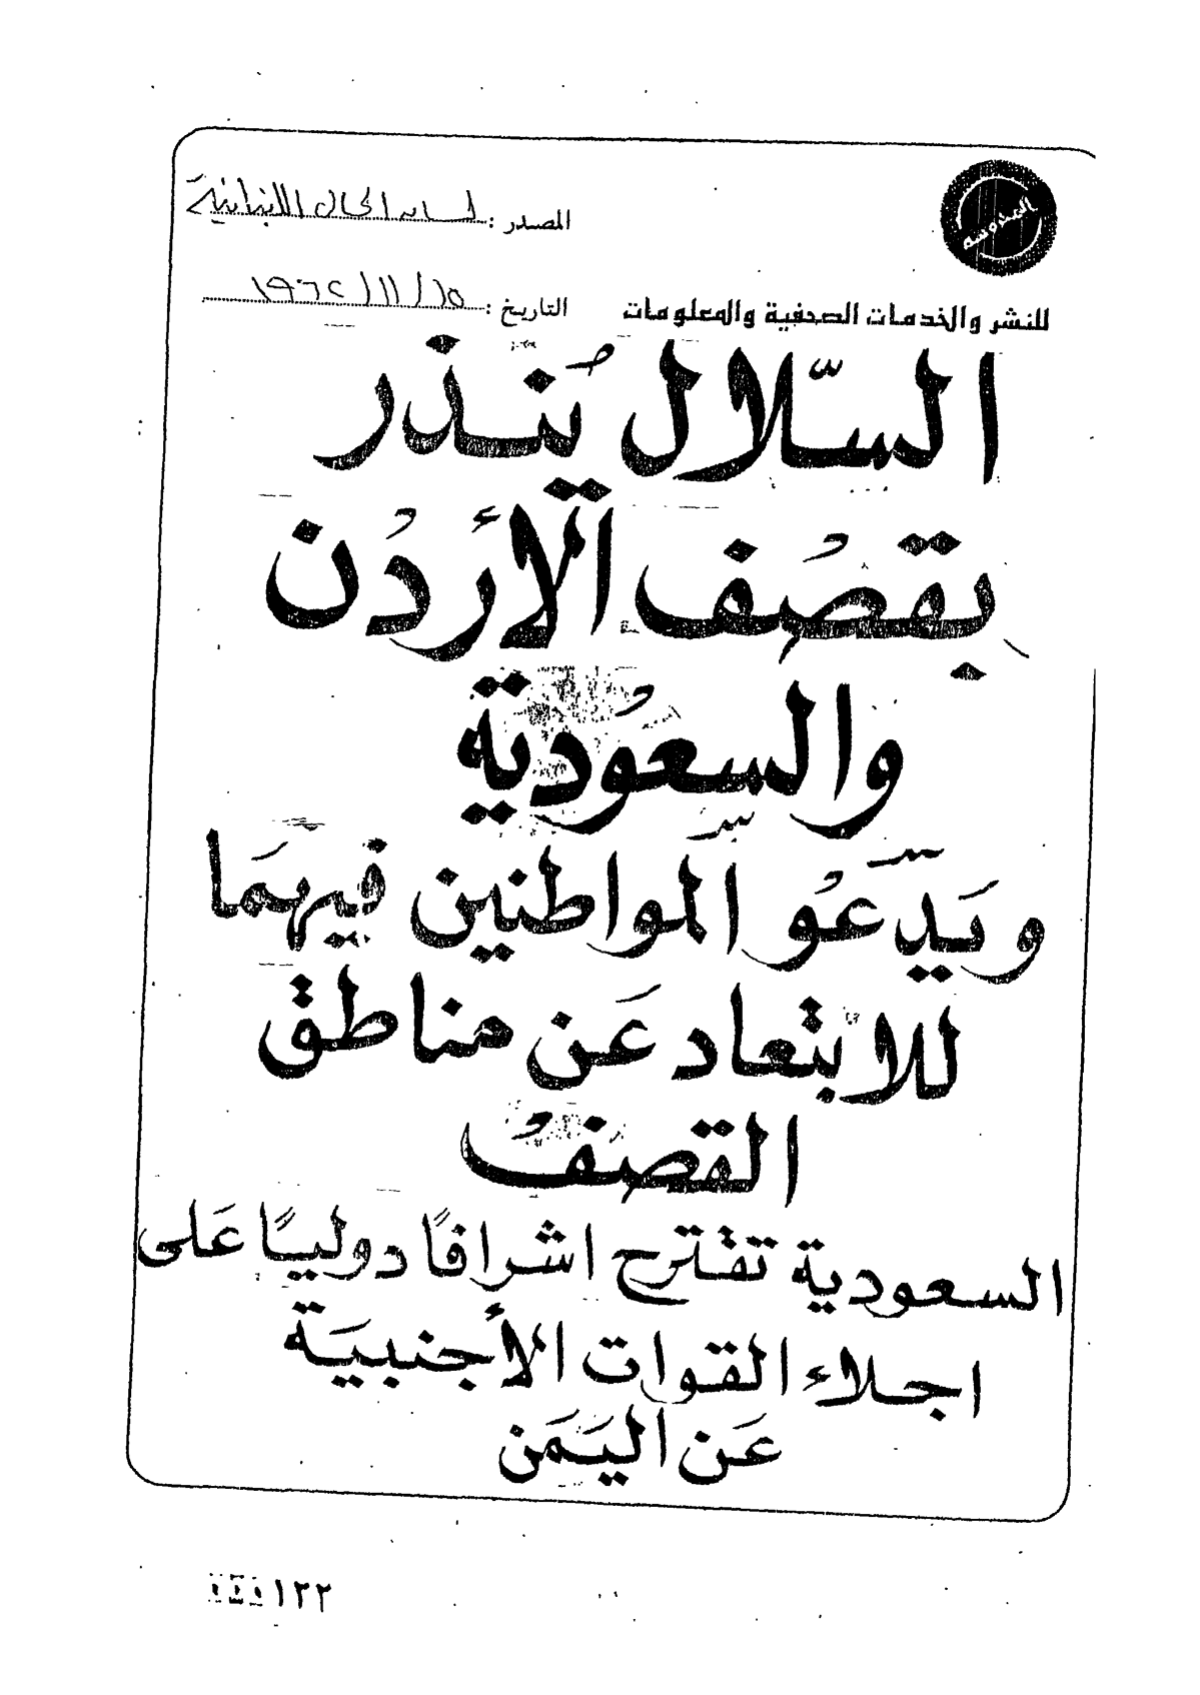 المصدر : لسان الحال اللبنانية
التاريخ : ١٥ / ١١ / ١٩٦٢
للنشر والخدمات الصحفية والمعلومات
السّلال يُنذر
بقصُف الأردُن
والسعُودية
ويَدّعُو المواطنين فيهمَا
للابتعاد عَن مناطق
القصفُ
السعودية تقترح اشرافًا دوليًا عَلى
اجلاء القوات الأجنبيَة
عَن اليَمَن
١٢٢